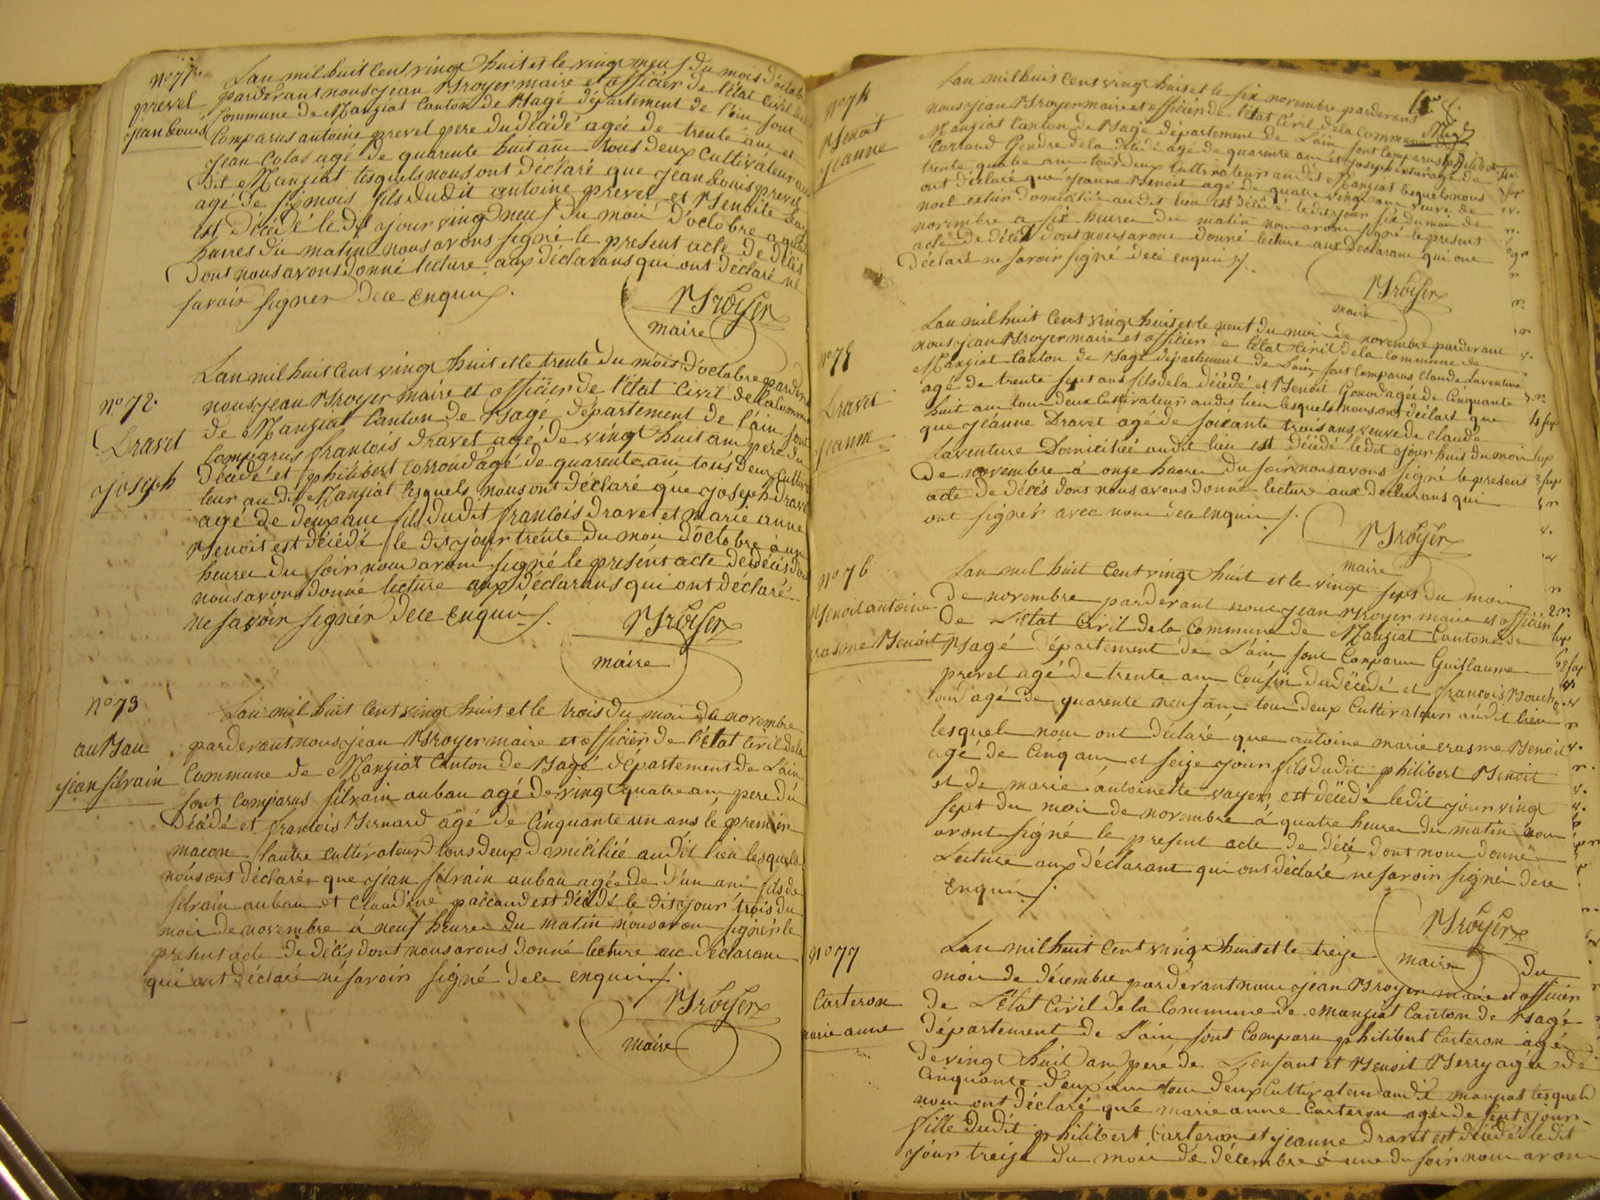 n°71
prevel
jean Louis
Lan mil huit Cent vingt huit et le vingt neuf du mois d'octobre
pardevant nous jean Broyer maire et officier de l'état Civil de la
Commune de Manziat Canton de Bagé département de l'ain sont
Comparus antoine prevel pere du décédé agée de trente ans et
jean Colas agé de quarente huit ans tous deux Cultivateur au
dit Manziat lesquels nous ont déclaré que jean Louis prevel
agé de six mois fils dudit antoine prevel et Benoite
est décédé le dit jour vingt neuf du mois d'octobre a quatre
heures du matin nous avons signé le present acte de décès
dont nous avons donné lecture aux déclarans qui ont déclaré ne
savoir signer de ce enquis.
Broyer
maire
n°72
Dravet
joseph
Lan mil huit Cent vingt huit et le trente du mois d'octobre pardevant
nous jean Broyer maire et officier de l'état Civil de la Commune
de Manziat Canton de Bage département de l'ain sont
Comparus francois dravet agé de vingt huit ans pere du
décédé et philibert Corrond agé de quarente ans tous deux Cultiva
teur audit Manziat lesquels nous ont déclaré que joseph dravet
agé de deux ans fils dudit francois dravet et marie anne
Benoit est décédé le dit jour trente du mois d'octobre à un
heures du soir nous avons signé le présent acte de décès dont
nous avons donné lecture aux déclarans qui ont déclaré
ne savoir signer de ce enquis.
Broyer
maire
n°73
aubau
jean silvain
Lan mil huit Cent vingt huit et le trois du mois de novembre
pardevant nous jean Broyer maire et officier de l'état Civil de la
Commune de Manziat Canton de Bagé département de L'ain
sont Comparus silvain aubau agé de vingt quatre ans pere du
Décédé et francois Bernard agé de Cinquante un ans le premier
macon l'autre cultivateur tous deux domiciliée audit lieu lesquels
nous ont déclaré que jean silvain aubau agée de d'un ans fils de
silvain aubau et Claudine paccaud est décédé le dit jour trois du
mois de novembre à neuf heures du matin nous avons signer le
present acte de décés dont nous avons donné lecture au déclarans
qui ont déclaré ne savoir signé de ce enquis.
Broyer
maire
n°74
Benoit
jeanne
Lan mil huit Cent vingt huit et le six novembre pardevant
nous jean Broyer maire et officier de l'état Civil de la Commune de
Manziat Canton de Bagé département de L'ain sont Comparus philibert
Corrand Gendre de la décédé agé de quarente ans et joseph
trente quatre ans tous deux Cultivateurs au dit Manziat lesquels nous
ont déclaré que jeanne Benoit agé de quatre vingt ans veuve de
noel domiciliée au dit lieu est décédé le dit jour six du mois de
novembre a six heures du matin nous avons signé le present
acte de décès dont nous avons donné lecture aux déclarans qui ont
déclaré ne savoir signé de ce enquis.
Broyer
maire
n°75
Dravet
jeanne
Lan mil huit Cent vingt huit et le neuf du mois de novembre pardevant
nous jean Broyer maire et officier de l'état Civil de la Commune de
Manziat Canton de Bagé département de L'ain sont Comparus Claude Laventure
agé de trente sept ans fils de la décédé et Benoit Gonod agée de Cinquante
huit ans tous deux Cultivateur audit lieu lesquels nous ont déclaré que
que jeanne Dravet agé de soixante trois ans veuve de Claude
Laventure Domiciliée audit lieu est décédé le dit jour huit du mois
De novembre à onze heures du soir nous avons signé le present
acte de décès dont nous avons donné lecture aux declarans qui
ont signer avec nous de ce enquis.
Broyer
maire
n°76
Benoit antoine
erasme Benoit
Lan mil huit Cent vingt huit et le vingt sept du mois
de novembre pardevant nous jean Broyer maire et officier
de L'état Civil de la Commune de Manziat Canton de
Bagé département de L'ain sont Comparus Guillaume
prevel agé de trente ans Cousin du décedé et francois Bouch
agé de quarente neuf ans tous deux Cultivateur audit lieu
lesquels nous ont déclaré que antoine marie erasme Benoit
agé de Cinq ans et seize jours fils dudit philibert Benoit
et de marie antoinette vayer est décédé le dit jour vingt
sept du mois de novembre à quatre heures du matin nous
avons signé le present acte de décé dont nous donné
Lecture aux déclarant qui ont déclaré ne savoir signé de ce
enquis.
Broyer
maire
n°77
Carteron
marie anne
Lan mil huit Cent vingt huit et le treize du
mois de décembre pardevant nous jean Broyer maire et officier
de L'état Civil de la Commune de Manziat Canton de Bagé
département de L'ain sont Comparu philibert Carteron agé
de vingt huit ans pere de L'enfant et Benoit Berry agée de
Cinquante deux ans tous deux Cultivateur audit manziat lesquels
nous ont déclaré que marie anne Carteron agée de sept jours
fille dudit philibert Carteron et jeanne dravet est décédé le dit
jour treize du mois de décembre à une du soir nous avons